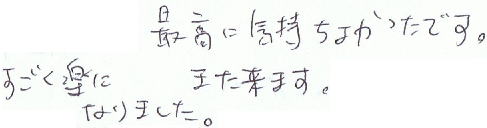 最高に気持ちよかったです。
すごく楽に
なりました。
また来ます。